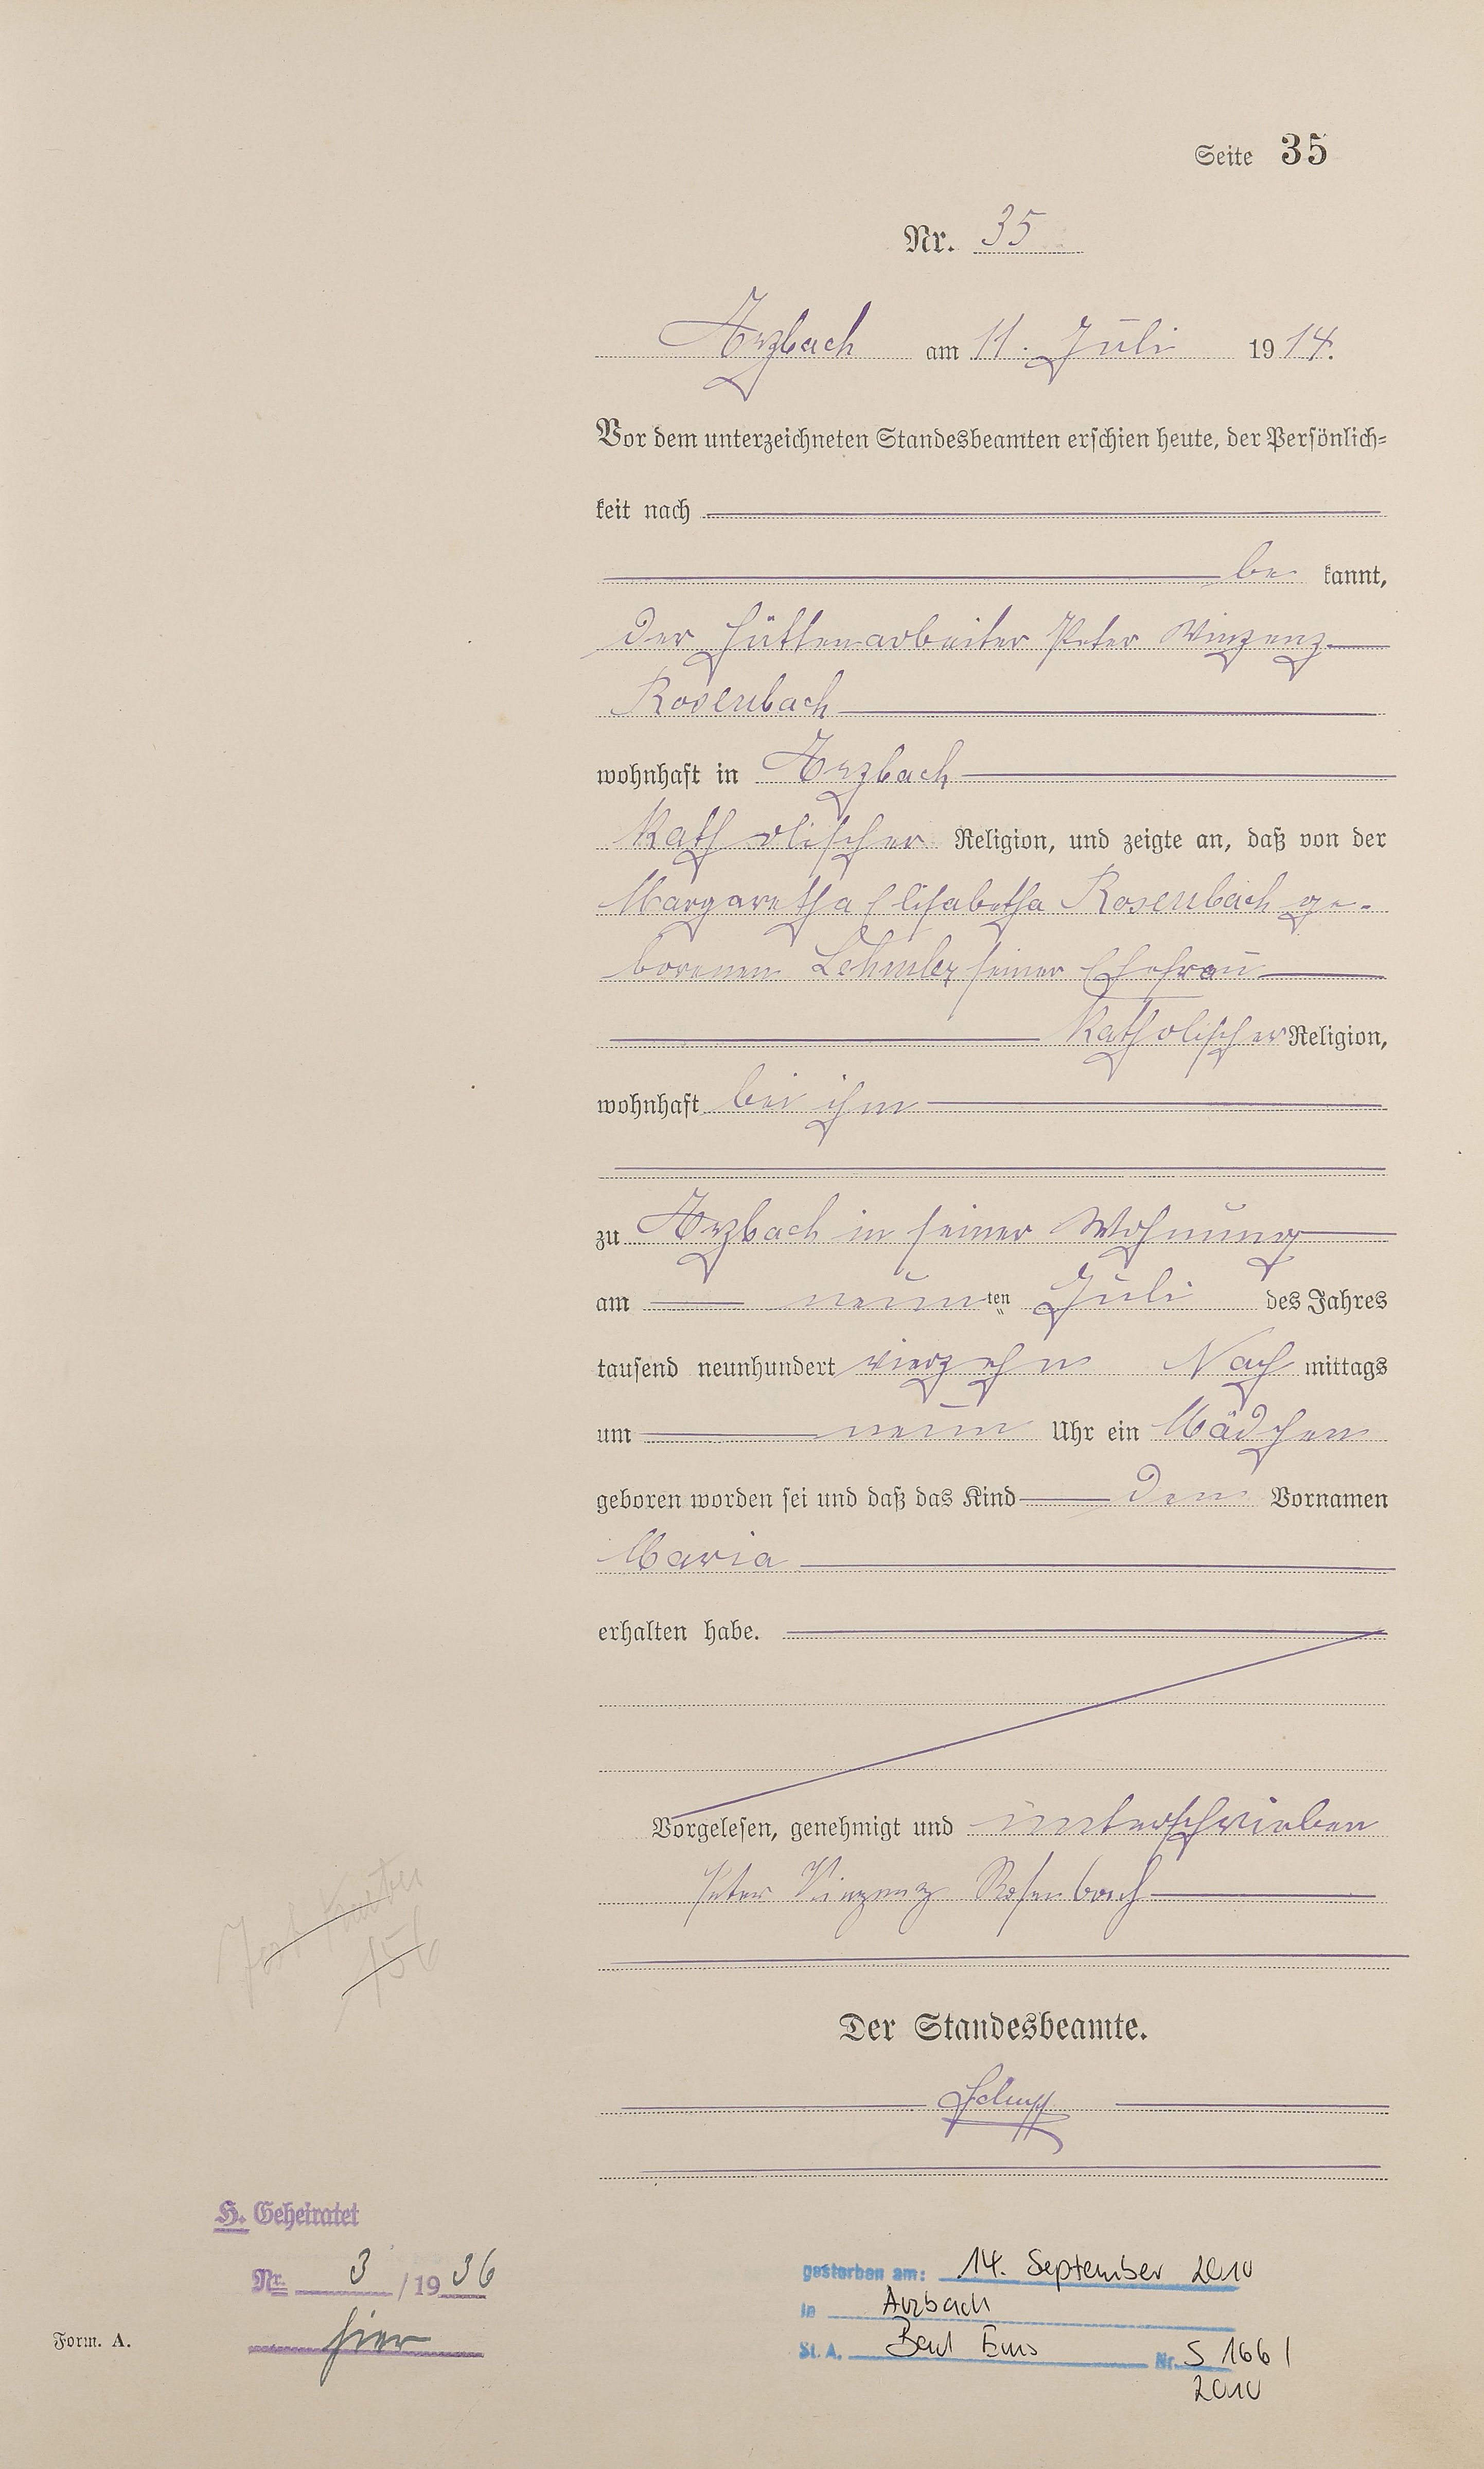 Seite 35
Nr. 35
Arzbach am 11. Juli 1914.
Vor dem unterzeichneten Standesbeamten erschien heute, der Persönlich-
keit nach
be kannt,
der Hüttenarbeiter Peter Vinzenz
Rosenbach
wohnhaft in Arzbach
katholischer Religion, und zeigte an, daß von der
Margaretha Elisabetha Rosenbach ge-
borenen Lehmler seiner Ehefrau
katholischer Religion,
wohnhaft bei ihm
zu Arzbach in seiner Wohnung
am neun ten Juli des Jahres
tausend neunhundert vierzehn Nach mittags
um neun Uhr ein Mädchen
geboren worden sei und daß das Kind den Vornamen
Maria
erhalten habe.
Vorgelesen, genehmigt und unterschrieben
Peter Vinzenz Rosenbach
156
Der Standesbeamte.
H. Geheiratet
Nr. 3 /1936
hier
gestorben am: 14. September 2010
in Arzbach
St. A. Bad Ems Nr. S 166 /
2010
Form. A.